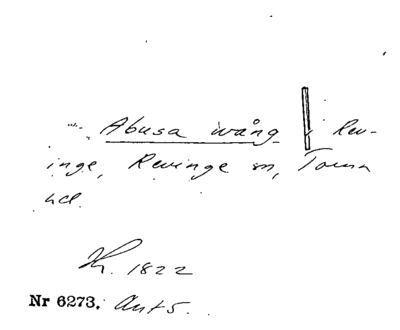 Abusa wång i Rev-
inge, Revinge sn, Torna
hd.
H. 1822
Nr 6273. Aut 5.